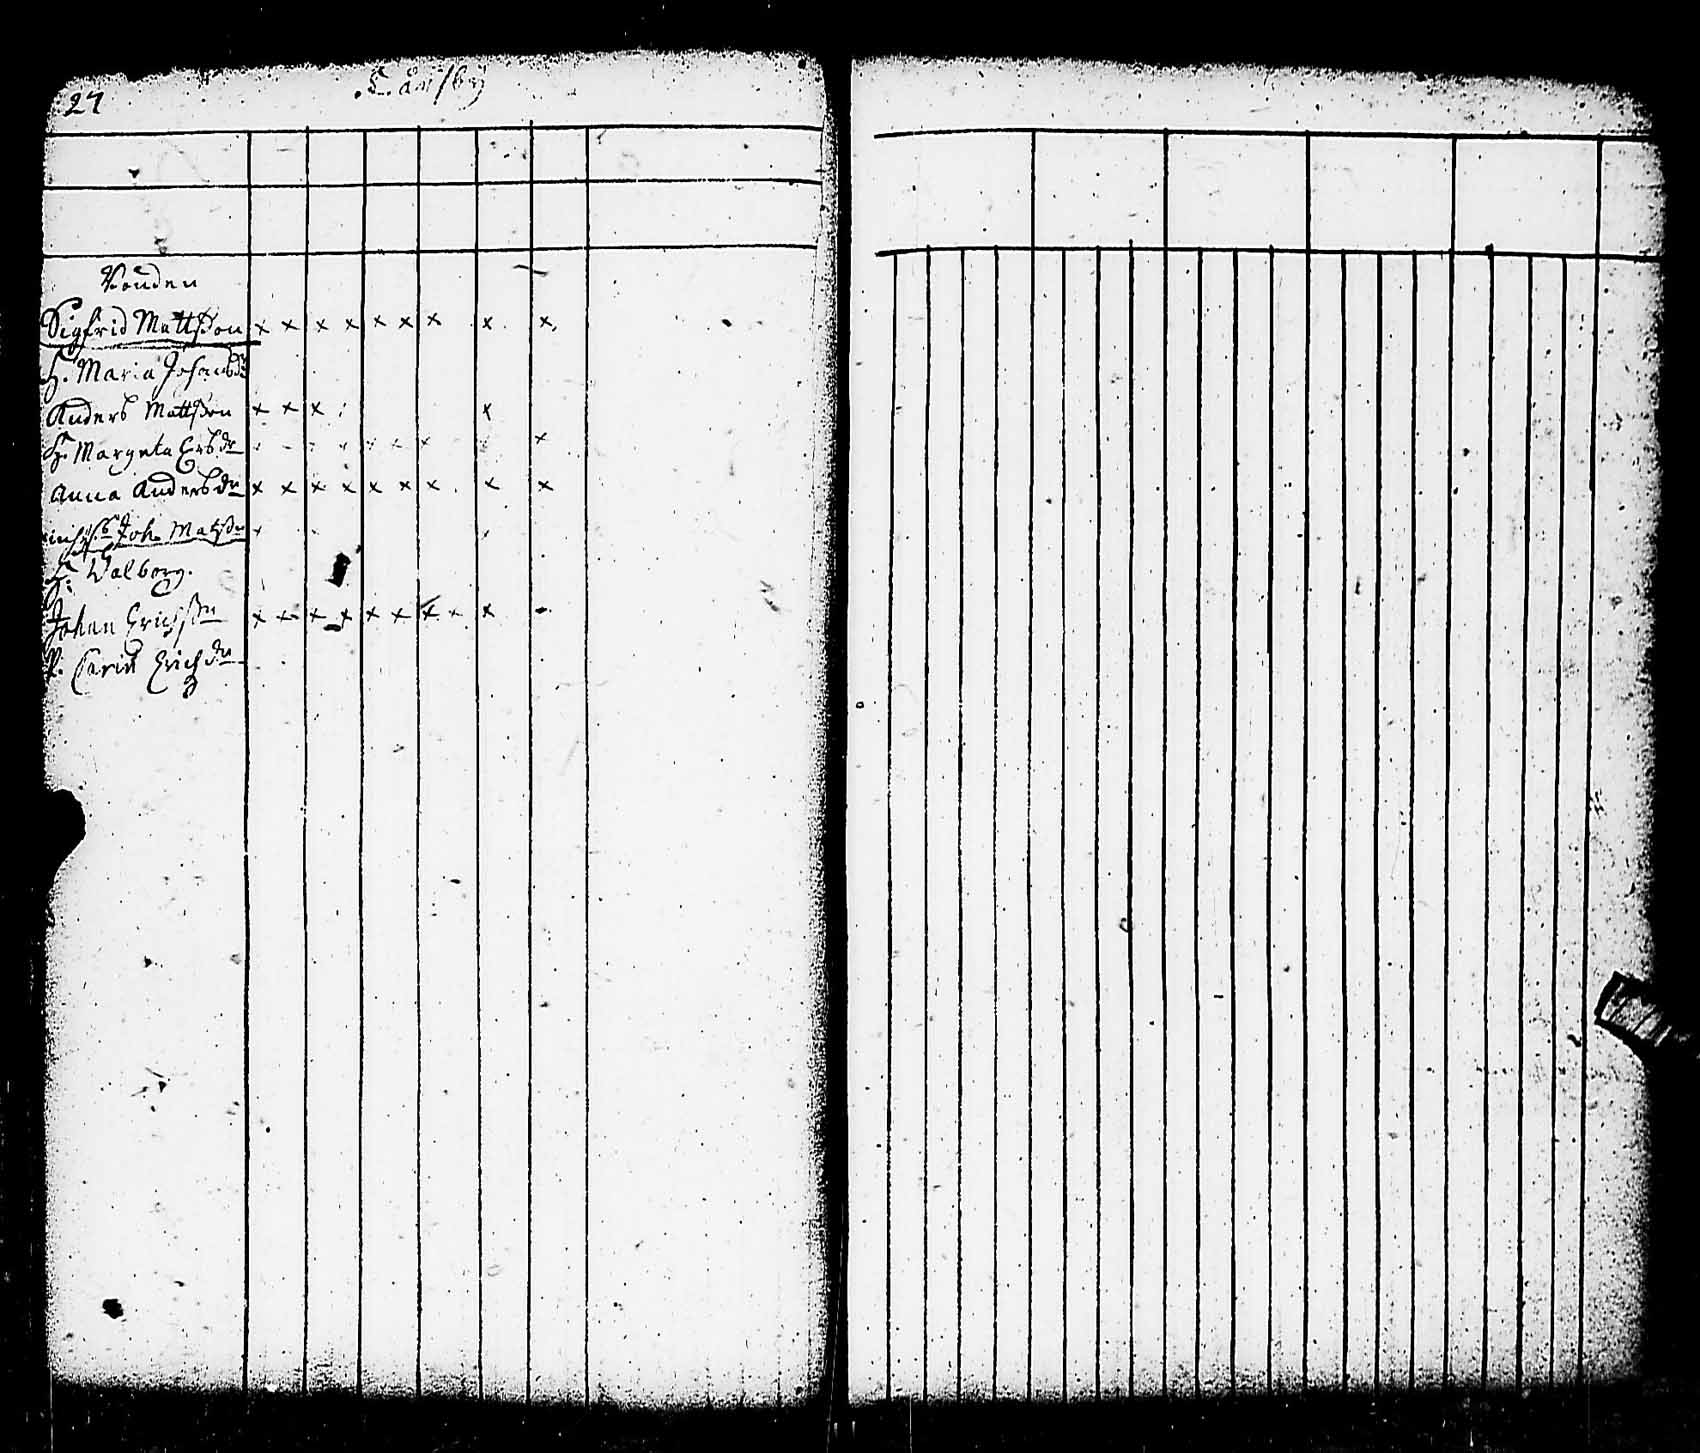 27
Bonden
Sigfrid Mattsson x x x x x x x x x
H. Maria Johansdr
Anders Mattsson x x x x
H. Margeta Ersdr x
Anna Andersdr x x x x x x x x x
Joh. Matsson
H. Walborg.
Johan Ericsson x x x x x x x x x
Carin Erichsdr